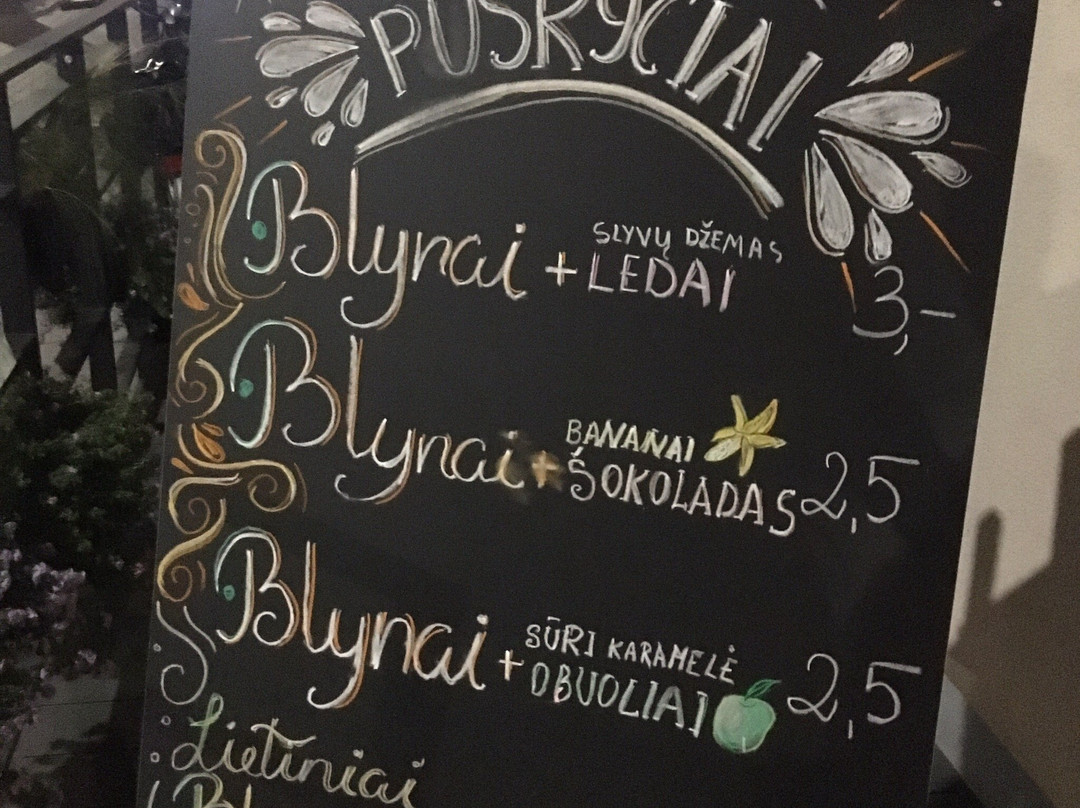 PUSRYČIAI
Blynai + SLYVŲ DŽEMAS
LEDAI
3,–
Blynai + BANANAI
ŠOKOLADAS 2,5
Blynai + SŪRI KARAMELĖ
OBUOLIAI 2,5
Lietiniai